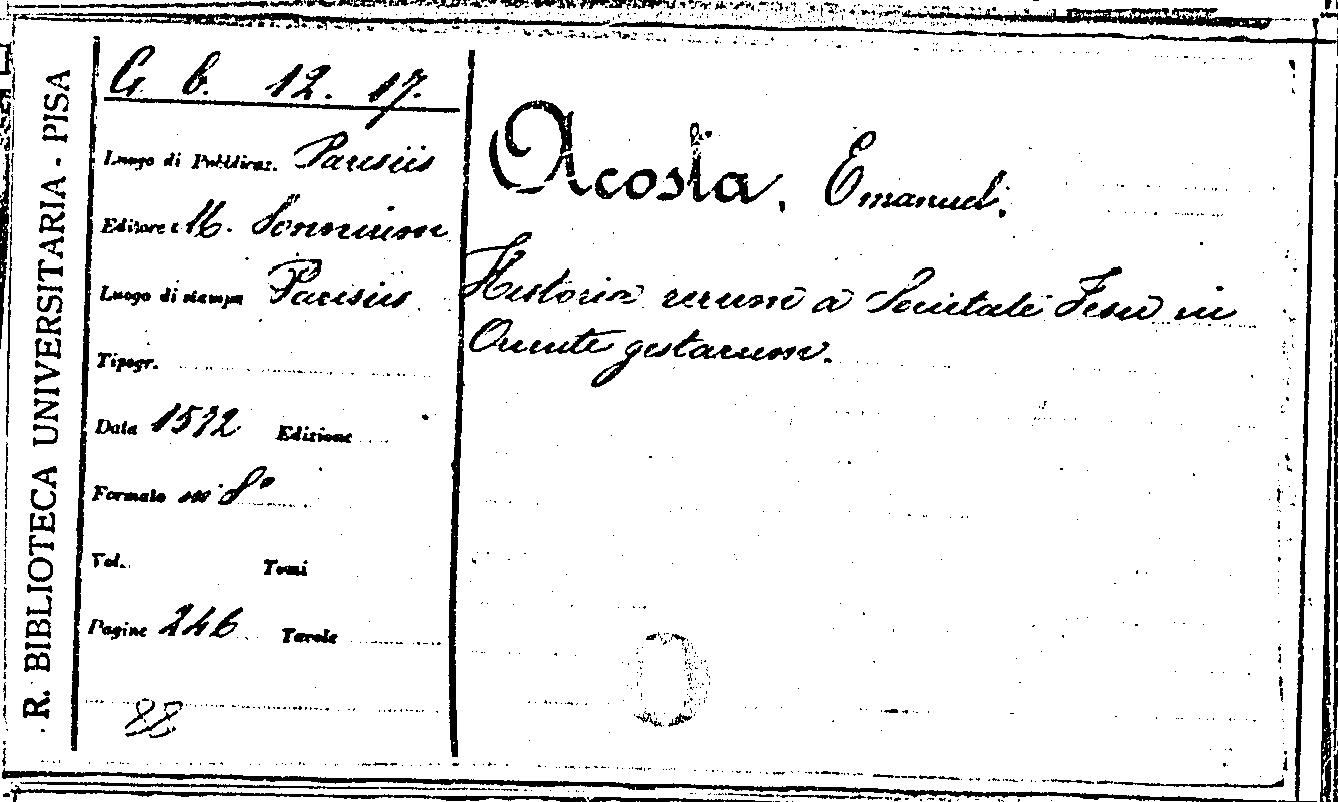 R. BIBLIOTECA UNIVERSITARIA - PISA
G. b. 12. 17.
Luogo di Pubblicaz. Parisiis
Editore M. Sonnium
Luogo di stampa Parisiis
Tipogr.
Data 1572 Edizione
Formato in 8°
Vol. Tomi
Pagine 246 Tavole
88
Acosta, Emanuel.
Historia rerum a Societate Jesu in
Oriente gestarum.